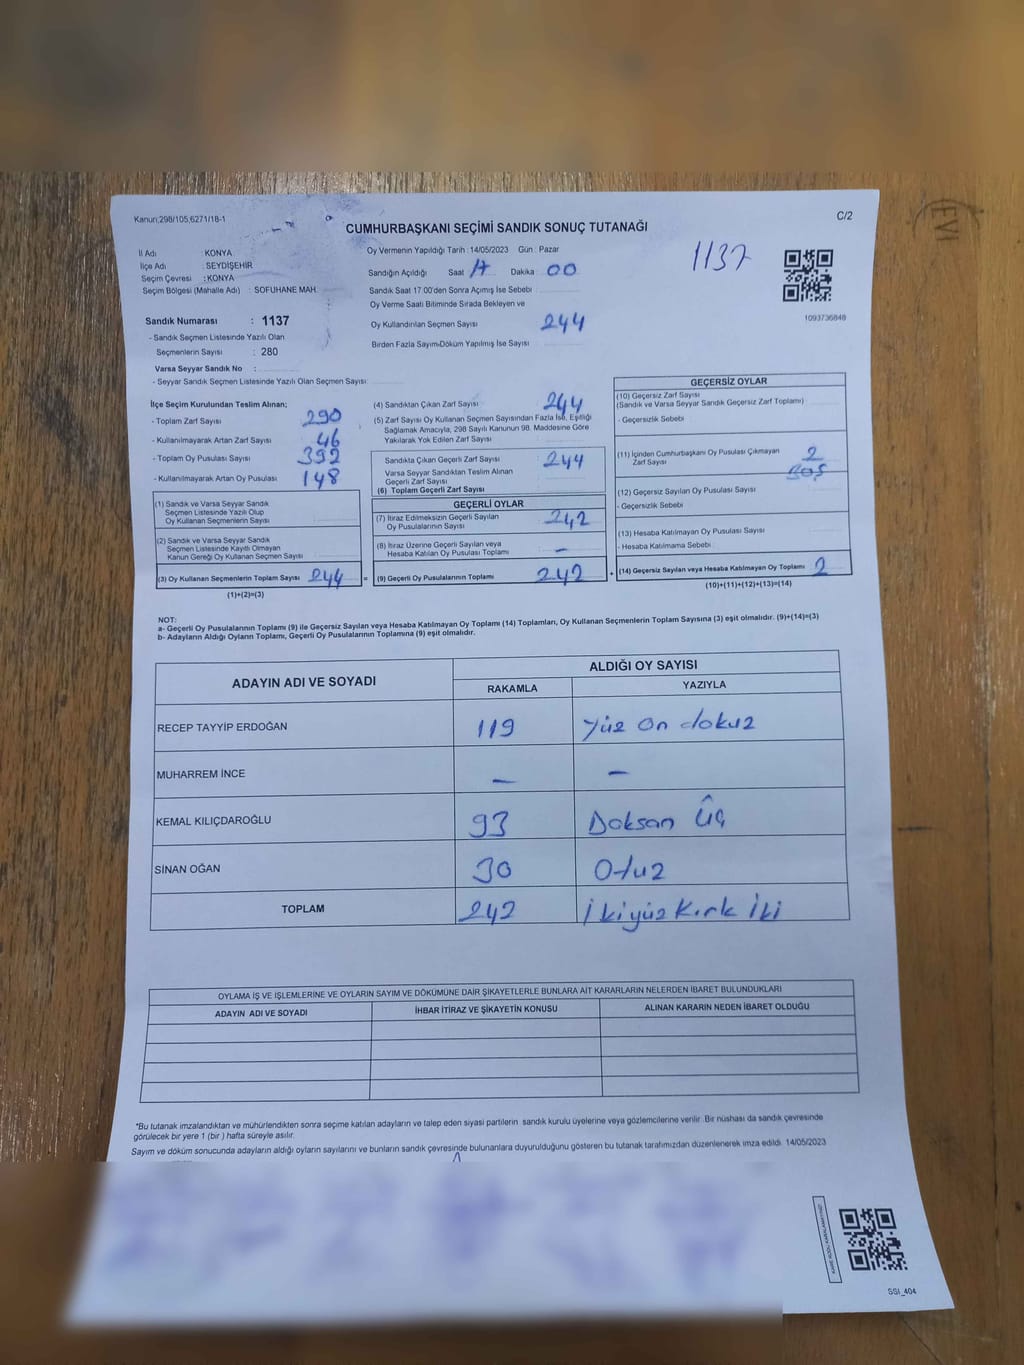 Kanun;298/105,6271/18-1
C/2
CUMHURBAŞKANI SEÇİMİ SANDIK SONUÇ TUTANAĞI
1137
İl Adı : KONYA
İlçe Adı : SEYDİŞEHİR
Seçim Çevresi : KONYA
Seçim Bölgesi (Mahalle Adı) : SOFUHANE MAH.
Oy Vermenin Yapıldığı Tarih : 14/05/2023 Gün : Pazar
Sandığın Açıldığı Saat 17 Dakika 00
Sandık Saat 17.00'den Sonra Açımış İse Sebebi
Oy Verme Saati Bitiminde Sırada Bekleyen ve
Oy Kullandırılan Seçmen Sayısı 244
Birden Fazla Sayım-Döküm Yapılmış İse Sayısı
1093736848
Sandık Numarası : 1137
- Sandık Seçmen Listesinde Yazılı Olan
Seçmenlerin Sayısı : 280
Varsa Seyyar Sandık No :
- Seyyar Sandık Seçmen Listesinde Yazılı Olan Seçmen Sayısı:
İlçe Seçim Kurulundan Teslim Alınan;
- Toplam Zarf Sayısı 290
- Kullanılmayarak Artan Zarf Sayısı 46
- Toplam Oy Pusulası Sayısı 392
- Kullanılmayarak Artan Oy Pusulası 148
(1) Sandık ve Varsa Seyyar Sandık
Seçmen Listesinde Yazılı Olup
Oy Kullanan Seçmenlerin Sayısı
(2) Sandık ve Varsa Seyyar Sandık
Seçmen Listesinde Kayıtlı Olmayan
Kanun Gereği Oy Kullanan Seçmen Sayısı
(3) Oy Kullanan Seçmenlerin Toplam Sayısı 244 =
(1)+(2)=(3)
(4) Sandıktan Çıkan Zarf Sayısı 244
(5) Zarf Sayısı Oy Kullanan Seçmen Sayısından Fazla İse, Eşitliği
Sağlamak Amacıyla, 298 Sayılı Kanunun 98. Maddesine Göre
Yakılarak Yok Edilen Zarf Sayısı
Sandıkta Çıkan Geçerli Zarf Sayısı 244
Varsa Seyyar Sandıktan Teslim Alınan
Geçerli Zarf Sayısı
(6) Toplam Geçerli Zarf Sayısı
GEÇERLİ OYLAR
(7) İtiraz Edilmeksizin Geçerli Sayılan
Oy Pusulalarının Sayısı 242
(8) İtiraz Üzerine Geçerli Sayılan veya
Hesaba Katılan Oy Pusulası Toplamı –
(9) Geçerli Oy Pusulalarının Toplamı 242 +
GEÇERSİZ OYLAR
(10) Geçersiz Zarf Sayısı
(Sandık ve Varsa Seyyar Sandık Geçersiz Zarf Toplamı)
- Geçersizlik Sebebi
(11) İçinden Cumhurbaşkanı Oy Pusulası Çıkmayan
Zarf Sayısı 2
Boş
(12) Geçersiz Sayılan Oy Pusulası Sayısı
- Geçersizlik Sebebi
(13) Hesaba Katılmayan Oy Pusulası Sayısı
- Hesaba Katılmama Sebebi
(14) Geçersiz Sayılan veya Hesaba Katılmayan Oy Toplamı 2
(10)+(11)+(12)+(13)=(14)
NOT:
a- Geçerli Oy Pusulalarının Toplamı (9) ile Geçersiz Sayılan veya Hesaba Katılmayan Oy Toplamı (14) Toplamları, Oy Kullanan Seçmenlerin Toplam Sayısına (3) eşit olmalıdır. (9)+(14)=(3)
b- Adayların Aldığı Oyların Toplamı, Geçerli Oy Pusulalarının Toplamına (9) eşit olmalıdır.
ADAYIN ADI VE SOYADI
ALDIĞI OY SAYISI
RAKAMLA YAZIYLA
RECEP TAYYİP ERDOĞAN 119 Yüz On dokuz
MUHARREM İNCE – –
KEMAL KILIÇDAROĞLU 93 Doksan Üç
SİNAN OĞAN 30 Otuz
TOPLAM 242 İkiyüz Kırk İki
OYLAMA İŞ VE İŞLEMLERİNE VE OYLARIN SAYIM VE DÖKÜMÜNE DAİR ŞİKAYETLERLE BUNLARA AİT KARARLARIN NELERDEN İBARET BULUNDUKLARI
ADAYIN ADI VE SOYADI İHBAR İTİRAZ VE ŞİKAYETİN KONUSU ALINAN KARARIN NEDEN İBARET OLDUĞU
*Bu tutanak imzalandıktan ve mühürlendikten sonra seçime katılan adayların ve talep eden siyasi partilerin sandık kurulu üyelerine veya gözlemcilerine verilir. Bir nüshası da sandık çevresinde
görülecek bir yere 1 (bir ) hafta süreyle asılır.
Sayım ve döküm sonucunda adayların aldığı oyların sayılarını ve bunların sandık çevresinde bulunanlara duyurulduğunu gösteren bu tutanak tarafımızdan düzenlenerek imza edildi. 14/05/2023
SSI_404